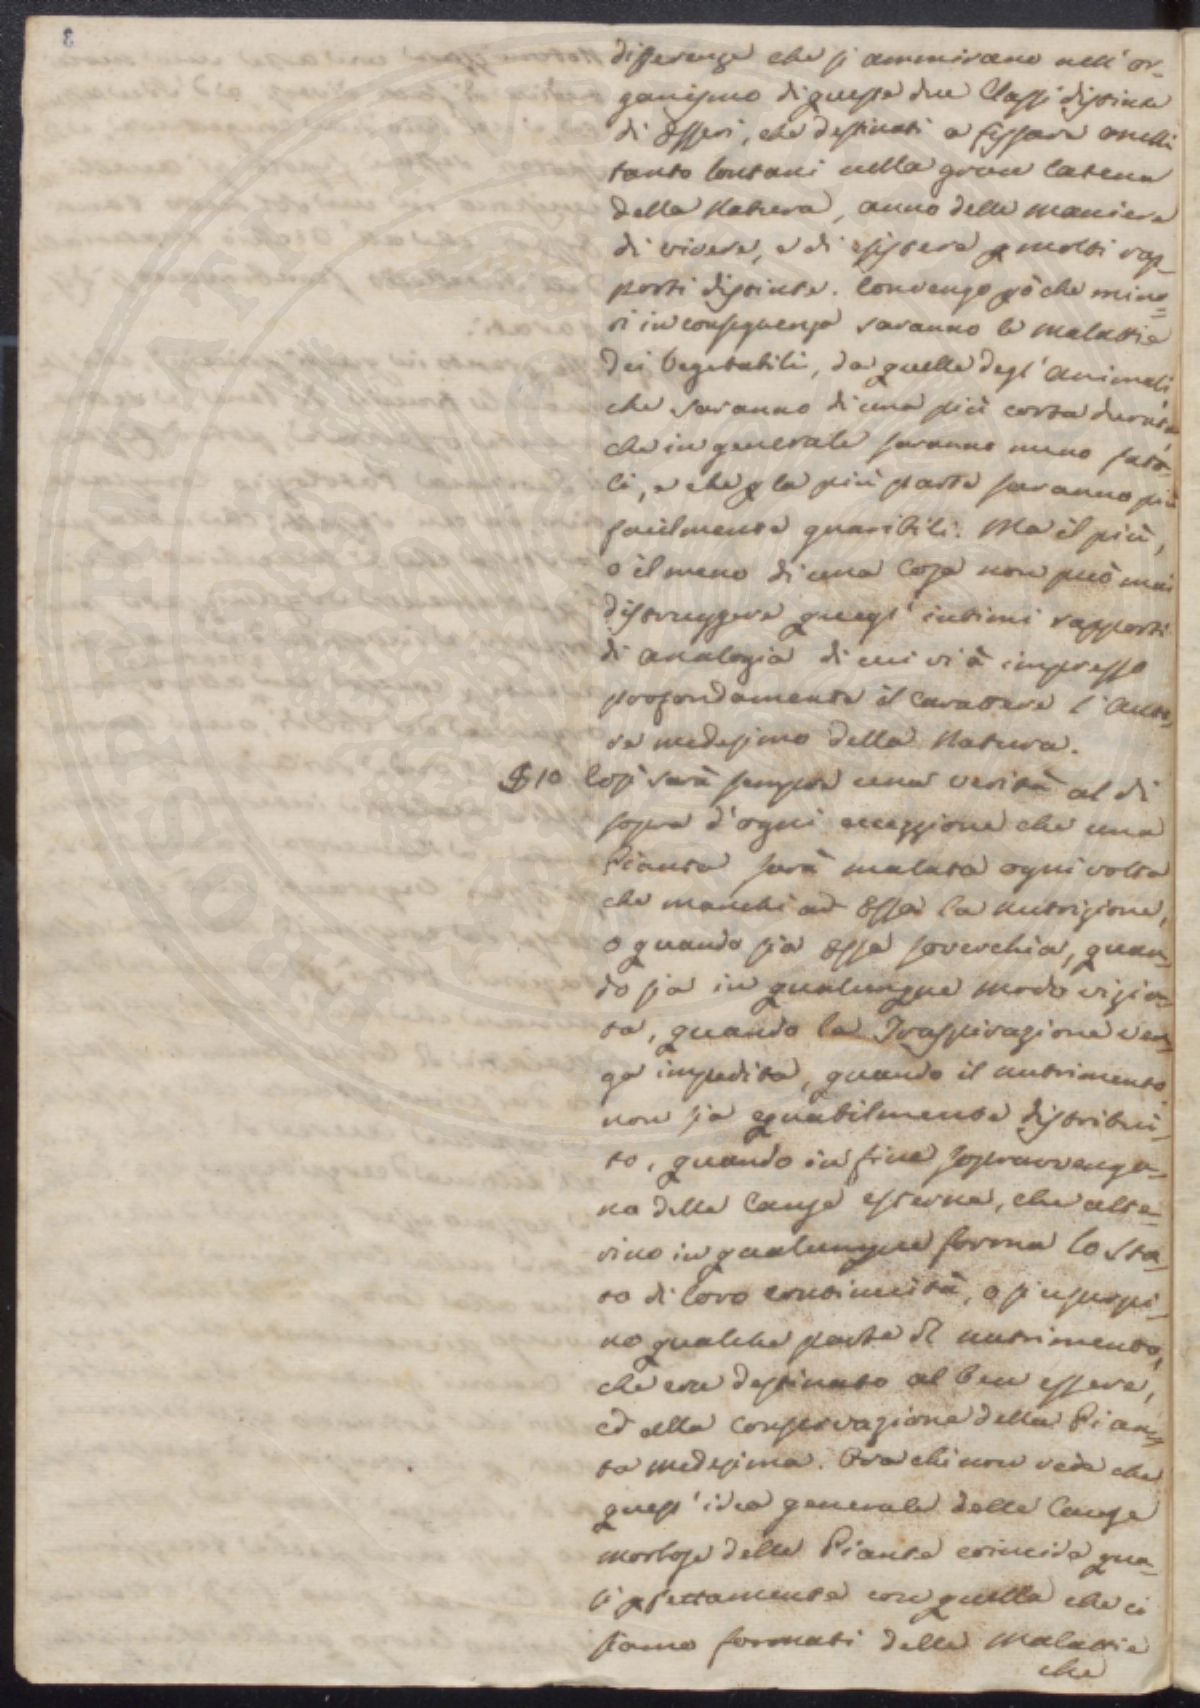 differenze che si ammirano nell'or-
ganismo di queste due Classi distinte
di Esseri, che destinati a fissare anelli
tanto lontani nella gran Catena
della Natura, anno delle maniere
di vivere, e di esistere p molti rap-
porti distinte. Convengo pò che mino-
ri in conseguenza saranno le malattie
dei Vegetabili, da quelle degl'animali,
che saranno di una più corta durata,
che in generale saranno meno fata-
li, e che p la più parte saranno più
facilmente guaribili. Ma il più,
o il meno di una Cosa non può mai
distruggere quegl'intimi rapporti
di analogia di cui vi à impresso
profondamente il Carattere l'Auto-
re medesimo della Natura.
§ 10 Così sarà sempre una verità al di
sopra d'ogni eccezzione che una
Pianta sarà malata ogni volta
che manchi ad Essa la nutrizione,
o quando sia Essa soverchia, quan-
do sia in qualunque modo vizia-
ta, quando la Traspirazione ven-
ga impedita, quando il nutrimento
non sia equabilmente distribui-
to, quando in fine sopravvenga-
no delle Cause esterne, che alte-
rino in qualunque forma lo sta-
to di loro continuità, o si usurpi-
no qualche parte di nutrimento,
che era destinato al ben essere,
ed alla conservazione della Pian-
ta medesima. Ora chi non vede che
quest'idea generale delle Cause
morbose delle Piante coincide qua-
si pfettamente con quella che ci
siamo formati delle Malattie
che
PROSPERITATI PUBLICAE
3